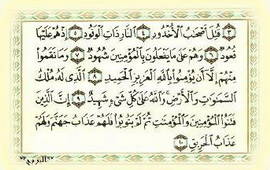 قُتِلَ أَصْحَٰبُ ٱلْأُخْدُودِ ٤ ٱلنَّارِ ذَاتِ ٱلْوَقُودِ ٥ إِذْ هُمْ عَلَيْهَا
قُعُودٌ ٦ وَهُمْ عَلَىٰ مَا يَفْعَلُونَ بِٱلْمُؤْمِنِينَ شُهُودٌ ٧ وَمَا نَقَمُوا۟
مِنْهُمْ إِلَّآ أَن يُؤْمِنُوا۟ بِٱللَّهِ ٱلْعَزِيزِ ٱلْحَمِيدِ ٨ ٱلَّذِى لَهُۥ مُلْكُ
ٱلسَّمَٰوَٰتِ وَٱلْأَرْضِ وَٱللَّهُ عَلَىٰ كُلِّ شَىْءٍ شَهِيدٌ ٩ إِنَّ ٱلَّذِينَ
فَتَنُوا۟ ٱلْمُؤْمِنِينَ وَٱلْمُؤْمِنَٰتِ ثُمَّ لَمْ يَتُوبُوا۟ فَلَهُمْ عَذَابُ جَهَنَّمَ وَلَهُمْ
عَذَابُ ٱلْحَرِيقِ ١٠
البروج